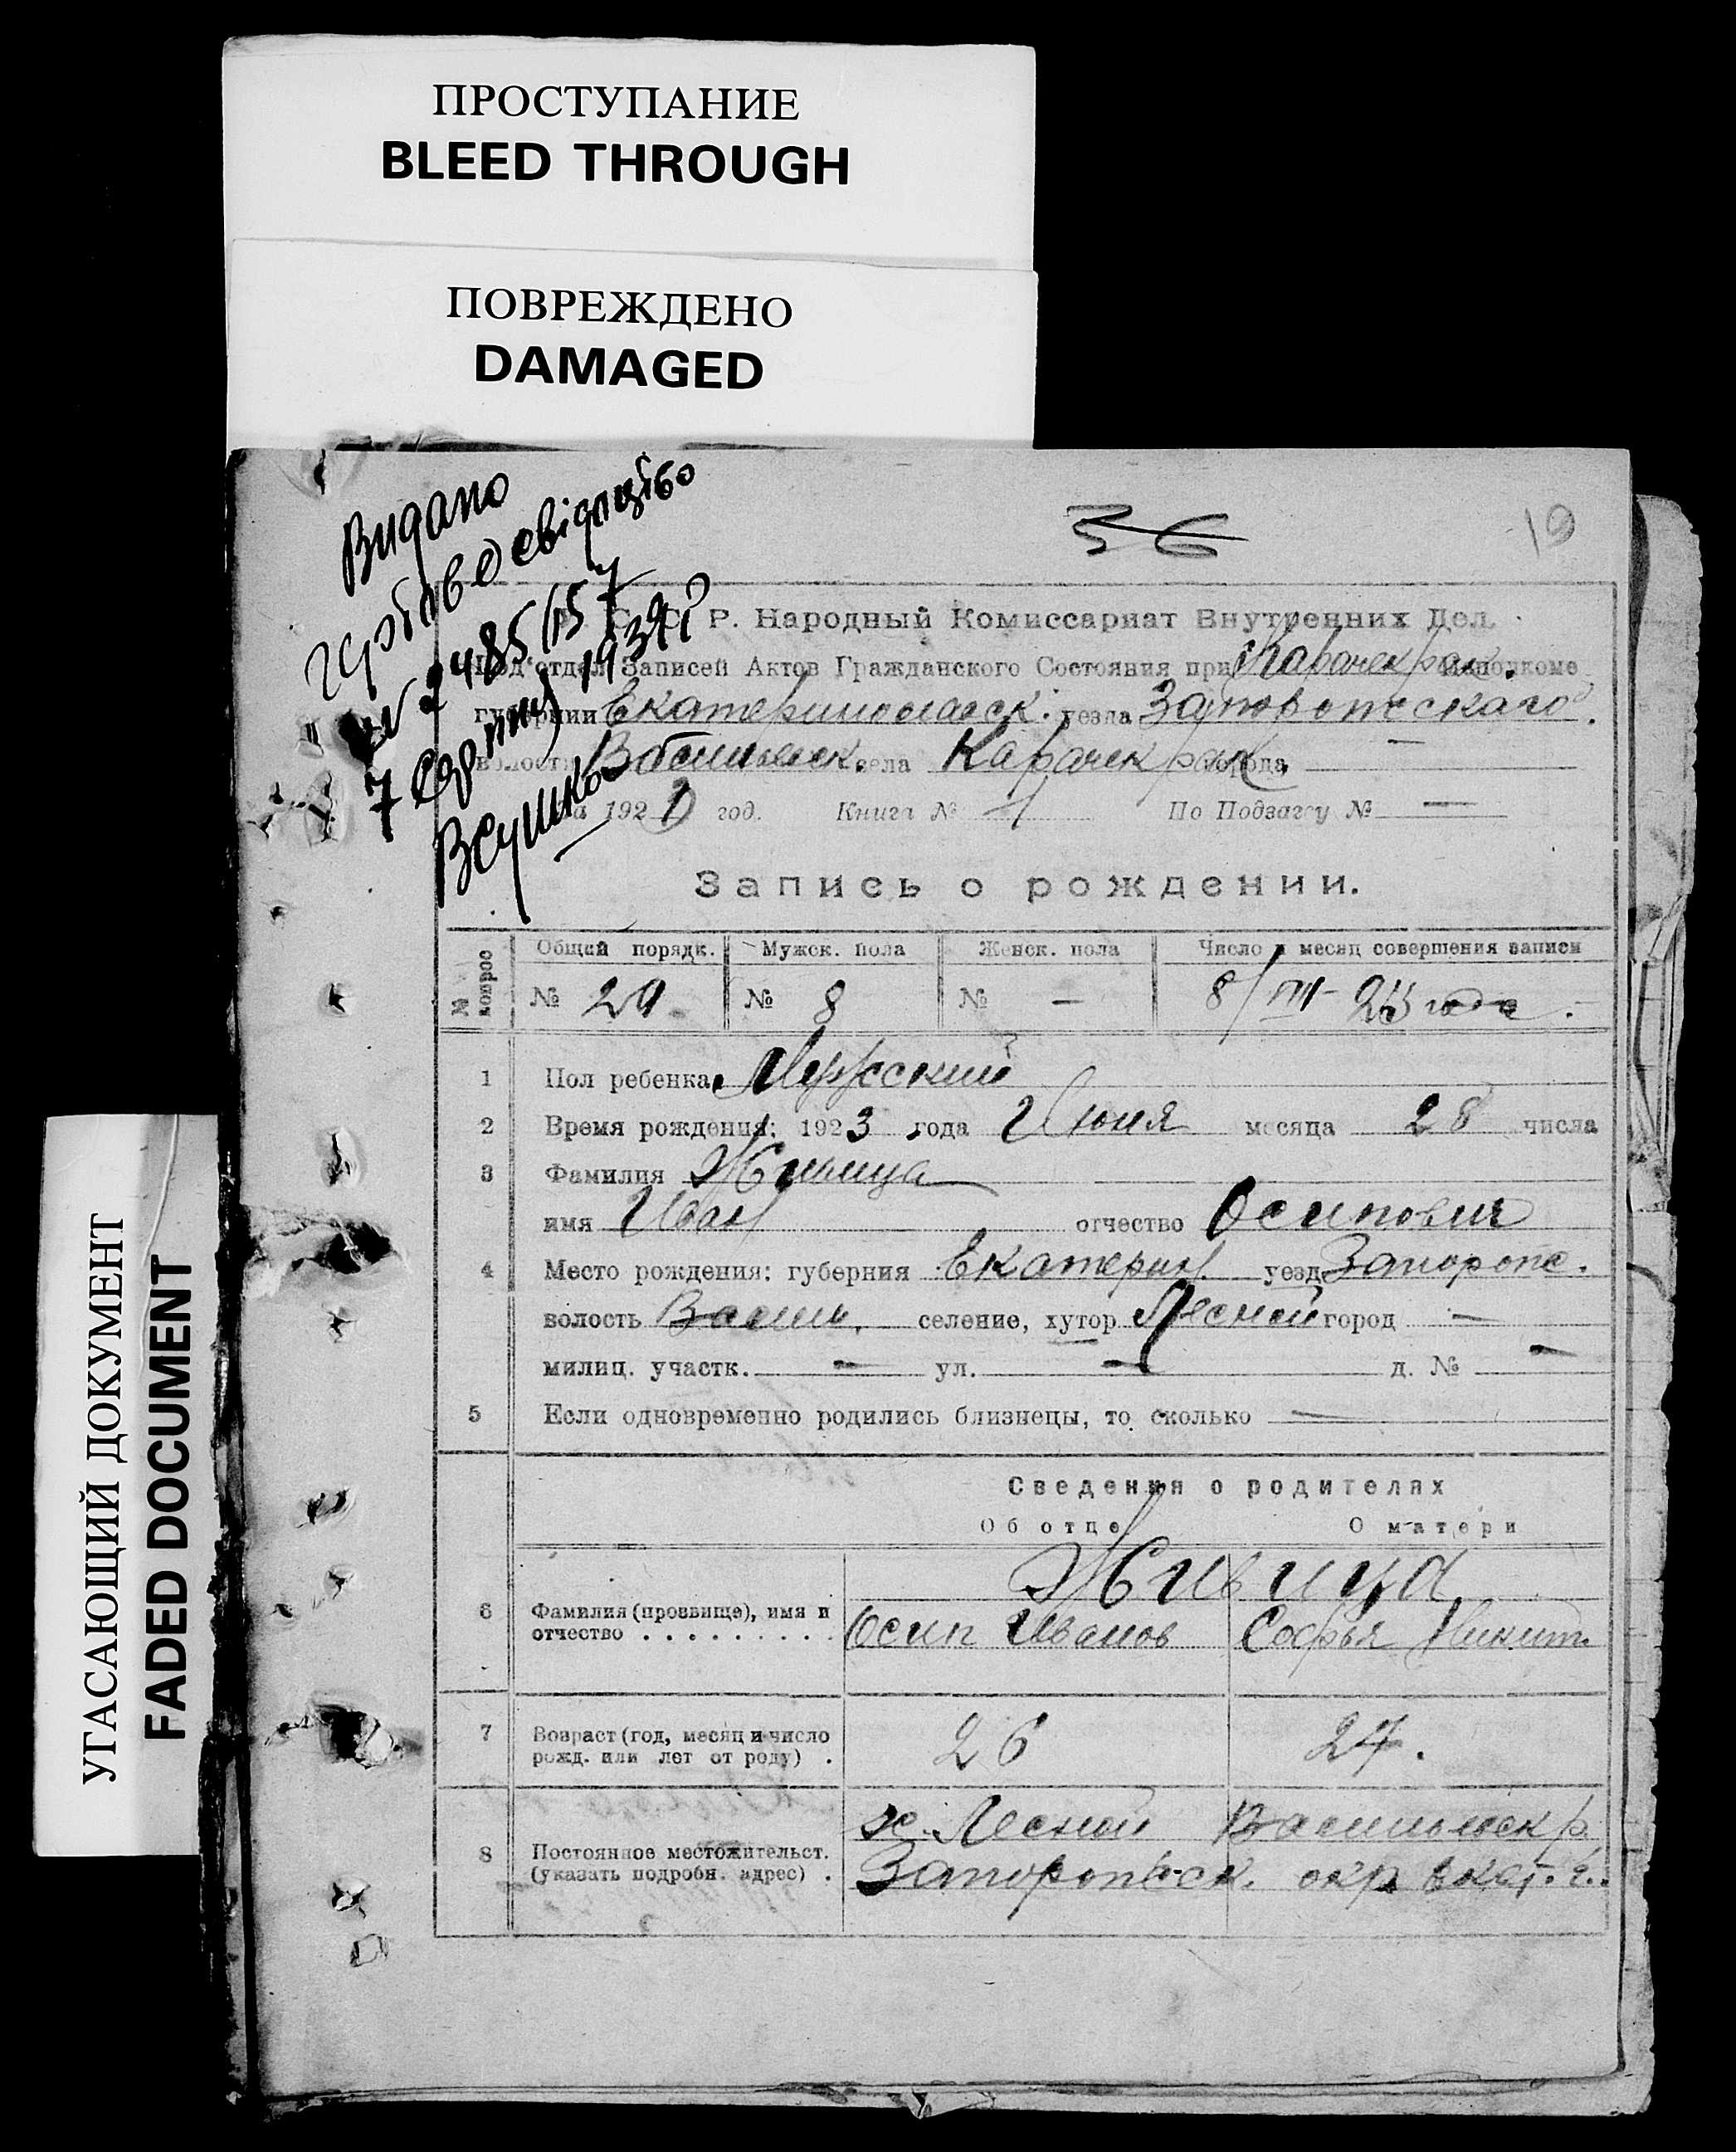 ПРОСТУПАНИЕ
BLEED THROUGH
ПОВРЕЖДЕНО
DAMAGED
УГАСАЮЩИЙ ДОКУМЕНТ
FADED DOCUMENT
Видано
свідоцтво
1939
36
19
С. С. Р. Народный Комиссариат Внутренних Дел.
Под‘отдел Записей Актов Гражданского Состояния при Карачекрак. Исполкоме
губернии Екатеринославск. уезда Запорожскаго
волости Васильевск. села Карачекрак города —
За 192 год. Книга № 1 По Подзагсу № —
Запись о рождении.
№ вопрос
Общий порядк. Мужск. пола Женск. пола Число и месяц совершения записи
№ 29. № 8 № — 8/VII- 23 года.
1 Пол ребенка Мужской
2 Время рождения: 1923 года Июня месяца 28 числа
3 Фамилия Живица
имя Иван отчество Осипович
4 Место рождения: губерния Екатерин. уезд Запорож.
волость Васильев. селение, хутор Лесной город —
милиц. участк. — ул. — д. № —
5 Если одновременно родились близнецы, то сколько —
Сведения о родителях
Об отце О матери
Живица
6 Фамилия (прозвище), имя и
отчество . . . . . . . . . Осип Иванов Софья Никит.
7 Возраст (год, месяц и число
рожд. или лет от роду) . 26 27.
х. Лесной Васильевск р.
8 Постоянное местожительст.
(указать подробн. адрес) . Запорожск. окр Екат. г.